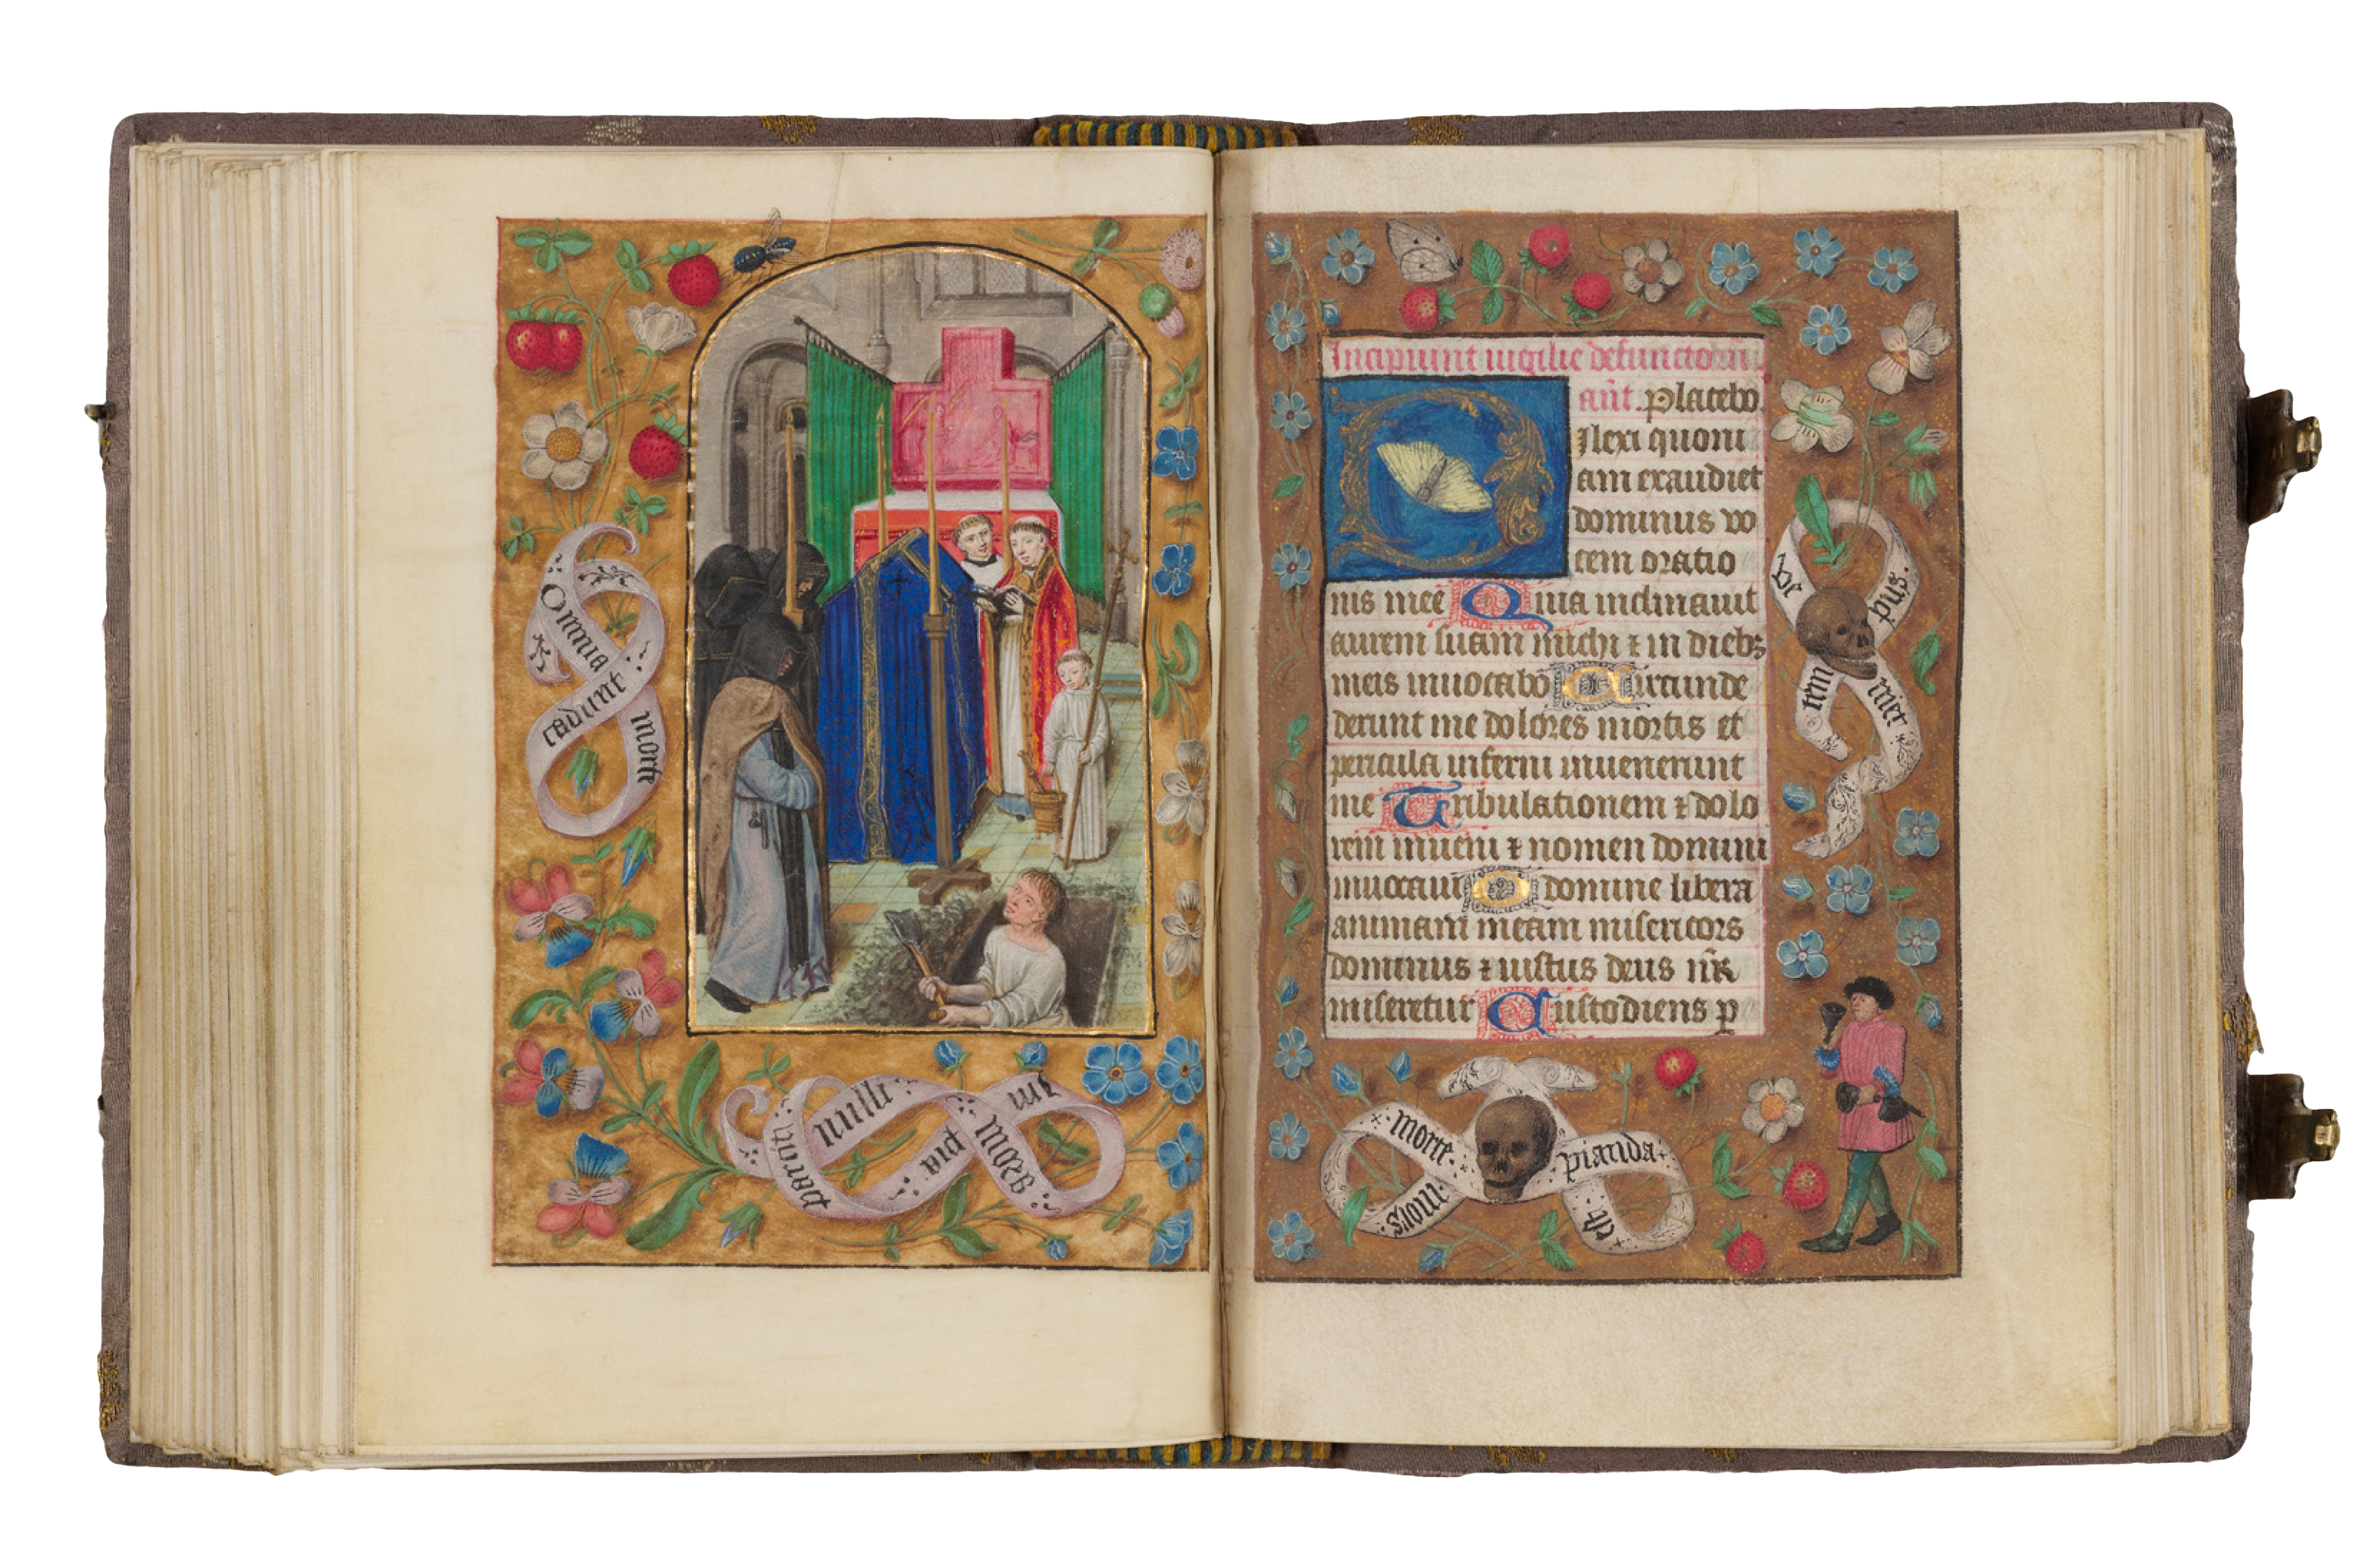 Omnia
cadunt
morte
parcit
nulli
pia
mors
Incipiunt vigilie defunctorũ
añt. Placebo.
Dilexi quoni
am exaudiet
dominus vo
cem oratio
nis mee Quia inclinauit
aurem suam michi ⁊ in diebꝫ
meis inuocabo Circunde
derunt me dolores mortis et
pericula inferni inuenerunt
me Tribulationem ⁊ dolo
rem inueni ⁊ nomen domini
inuocaui O domine libera
animam meam misericors
dominus ⁊ iustus deus nr̃
miseretur Custodiens p
pus.
tem
mors
morte
pianda
est